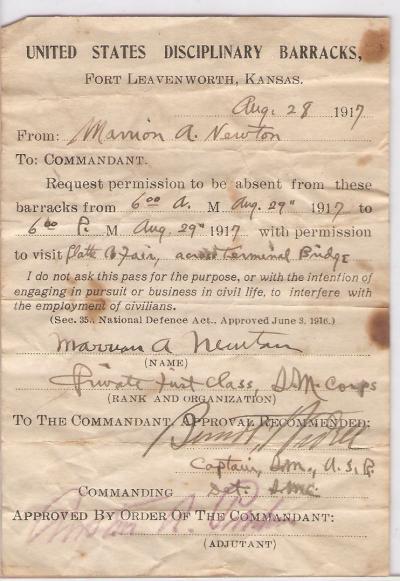 UNITED STATES DISCIPLINARY BARRACKS,
FORT LEAVENWORTH, KANSAS.
Aug. 28 1917
From: Marrion A. Newton
To: COMMANDANT.
Request permission to be absent from these
barracks from 6 00 A. M Aug. 29" 1917 to
6 00 P. M Aug. 29" 1917 with permission
to visit Platte Co Fair, across Terminal Bridge
I do not ask this pass for the purpose, or with the intention of
engaging in pursuit or business in civil life, to interfere with
the employment of civilians.
(Sec. 35., National Defence Act., Approved June 3, 1916.)
Marrion A Newton
(NAME)
Private First Class, Q.M. Corps
(RANK AND ORGANIZATION)
TO THE COMMANDANT, APPROVAL RECOMMENDED:
Captain, Q.M., U.S.R.
COMMANDING Det. Q.M.C.
APPROVED BY ORDER OF THE COMMANDANT:
(ADJUTANT)